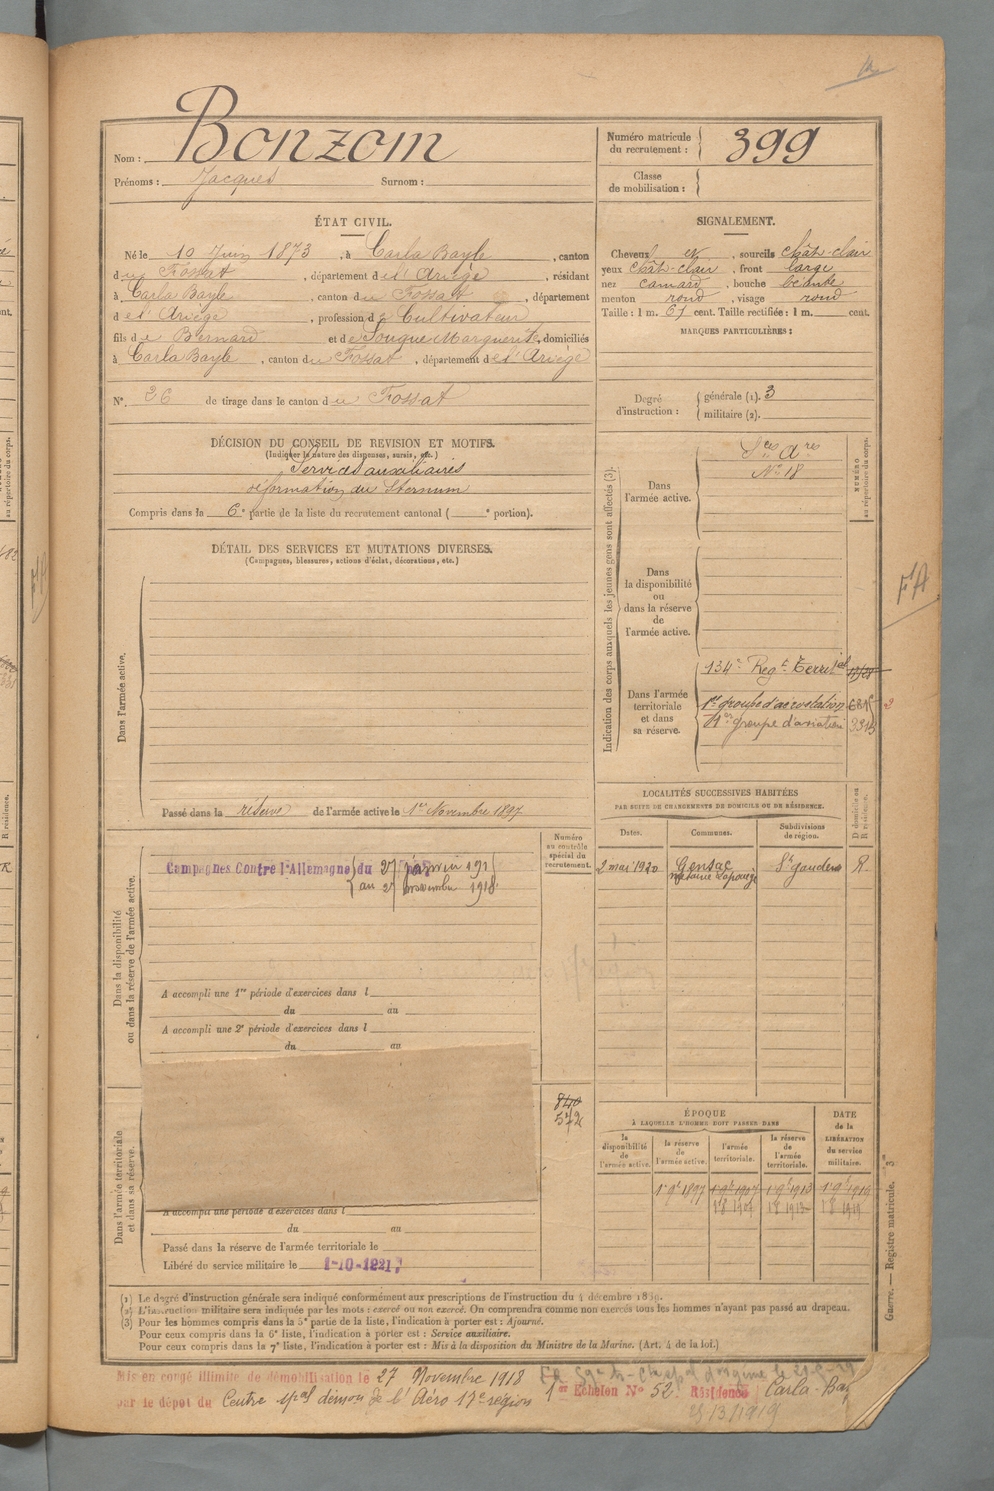 Nom : Bonzom
Prénoms : Jacques Surnom :
Numéro matricule du recrutement : 399
Classe de mobilisation :
ÉTAT CIVIL.
Né le 10 Juin 1873, à Carla Bayle, canton
du Fossat, département de l'Ariège, résidant
à Carla Bayle, canton du Fossat, département
de l'Ariège, profession de Cultivateur
fils de Bernard et de Souque Marguerite, domiciliés
à Carla Bayle, canton du Fossat, département de l'Ariège
N° 36 de tirage dans le canton du Fossat
SIGNALEMENT.
Cheveux et, sourcils chât-clair
yeux chât-clair, front large
nez camard, bouche béante
menton rond, visage rond
Taille : 1 m. 67 cent. Taille rectifiée : 1 m. cent.
MARQUES PARTICULIÈRES :
Degré d'instruction : générale (1). 3
militaire (2).
DÉCISION DU CONSEIL DE REVISION ET MOTIFS.
(Indiquer la nature des dispenses, sursis, etc.)
Services auxiliaires
déformation du Sternum
Compris dans la 6e partie de la liste du recrutement cantonal ( e portion).
DÉTAIL DES SERVICES ET MUTATIONS DIVERSES.
(Campagnes, blessures, actions d'éclat, décorations, etc.)
Dans l'armée active.
Passé dans la réserve de l'armée active le 1er Novembre 1897
Indication des corps auxquels les jeunes gens sont affectés (3).
NUMÉRO au répertoire du corps.
Dans l'armée active.
Sces Ares
N° 18
Dans la disponibilité ou dans la réserve de l'armée active.
Dans l'armée territoriale et dans sa réserve.
134e Regt Territial
1er groupe d'aérostation
1er groupe d'aviation
F'A
LOCALITÉS SUCCESSIVES HABITÉES
PAR SUITE DE CHANGEMENTS DE DOMICILE OU DE RÉSIDENCE.
Dates. Communes. Subdivisions de région. D domicile ou R résidence.
2 mai 1920 Gensac St gaudens R
Dans la disponibilité ou dans la réserve de l'armée active.
Numéro au contrôle spécial du recrutement.
Campagnes Contre l'Allemagne du 27 191
au 27 novembre 1918
A accompli une 1re période d'exercices dans l
du au
A accompli une 2e période d'exercices dans l
du au
840
Dans l'armée territoriale et dans sa réserve.
A accompli une période d'exercices dans l
du au
Passé dans la réserve de l'armée territoriale le
Libéré du service militaire le 1-10-1921
ÉPOQUE
À LAQUELLE L'HOMME DOIT PASSER DANS
la disponibilité de l'armée active. la réserve de l'armée active. l'armée territoriale. la réserve de l'armée territoriale.
DATE de la LIBÉRATION du service militaire.
1 9e 1897 1 9e 1907 1 9e 1913 1 9e 1919
1 8 1907 1 8 1913 1 8 1919
Guerre. — Registre matricule. 3
(1) Le degré d'instruction générale sera indiqué conformément aux prescriptions de l'instruction du 4 décembre 1889.
(2) L'instruction militaire sera indiquée par les mots : exercé ou non exercé. On comprendra comme non exercés tous les hommes n'ayant pas passé au drapeau.
(3) Pour les hommes compris dans la 5e partie de la liste, l'indication à porter est : Ajourné.
Pour ceux compris dans la 6e liste, l'indication à porter est : Service auxiliaire.
Pour ceux compris dans la 7e liste, l'indication à porter est : Mis à la disposition du Ministre de la Marine. (Art. 4 de la loi.)
Mis en congé illimité de démobilisation le 27 Novembre 1918
par le dépôt du Centre démon de l'Aéro 17e région
1er Echelon N° 52. Résidence Carla-Bay
25/3/1919